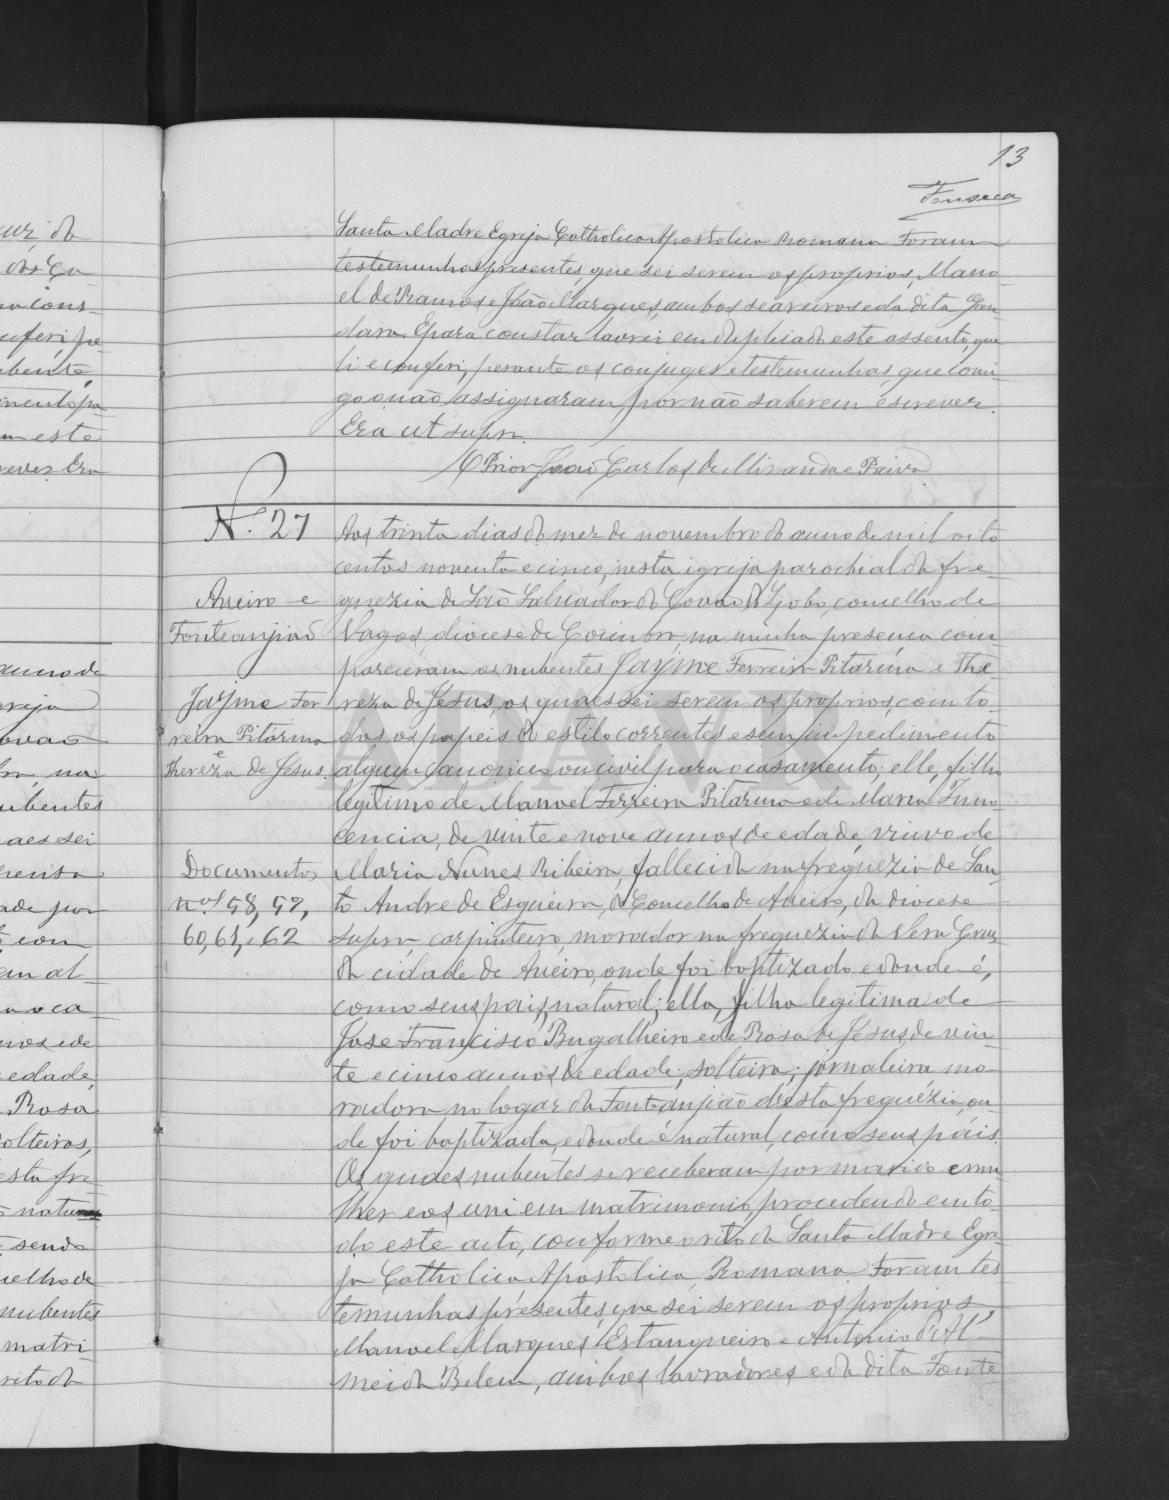 13
Fonseca
Santa Madre Egreja Catholica Apostolica Romana Foram
testemunhas presentes, que sei serem os proprios, Mano-
el de Ramos e João Marques, ambos seareiros e da dita Gan-
dara. E para constar lavrei em duplicado este assento, que
li e conferi, perante os conjuges e testemunhas, que comi-
go não assignaram por não saberem escrever.
Era ut supra.
O Prior João Carlos de Miranda e Paiva
N.º 27
Aveiro e
Fonteanjião
Jayme Fer
reira Pitarma
e
Thereza de Jesus.
Documentos
n.os 58, 59,
60, 61, e 62
Aos trinta dias do mez de novembro do anno de mil oito
centos noventa e cinco, nesta igreja parochial da fre-
guezia de São Salvador do Covão do Lobo, concelho de
Vagos, diocese de Coimbra, na minha presença com
pareceram os nubentes Jayme Ferreira Pitarma e The
reza de Jesus, os quaes sei serem os proprios, com to-
dos os papeis do estilo correntes e sem impedimento
algum canonico ou civil para o casamento; elle, filho
legitimo de Manoel Ferreira Pitarma e de Maria Inno-
cencia, de vinte e nove annos de edade, viuvo de
Maria Nunes Ribeira, fallecida na freguezia de San-
to Andre de Esgueira, do Concelho de Aveiro, da diocese
supra, carpinteiro, morador na freguezia da Vera Cruz
da cidade de Aveiro, onde foi baptizado e donde é,
como seus pais, natural; ella, filha legitima de
José Francisco Bugalheiro e de Rosa de Jesus, de vin-
te e cinco annos de edade, solteira, jornaleira, mo
radora no logar da Fonteanjião d'esta freguezia, on-
de foi baptizada, e donde é natural, como seus páis.
Os quaes nubentes se receberam por marido e mu-
lher e os uni em matrimonio, procedendo em to-
do este acto, conforme o rito da Santa Madre Egre-
ja Catholica Apostolica Romana Foram tes
temunhas presentes, que sei serem os proprios,
Manoel Marques Estanqueiro e Antonio d'Al-
meida Belem, ambos lavradores e da dita Fonte